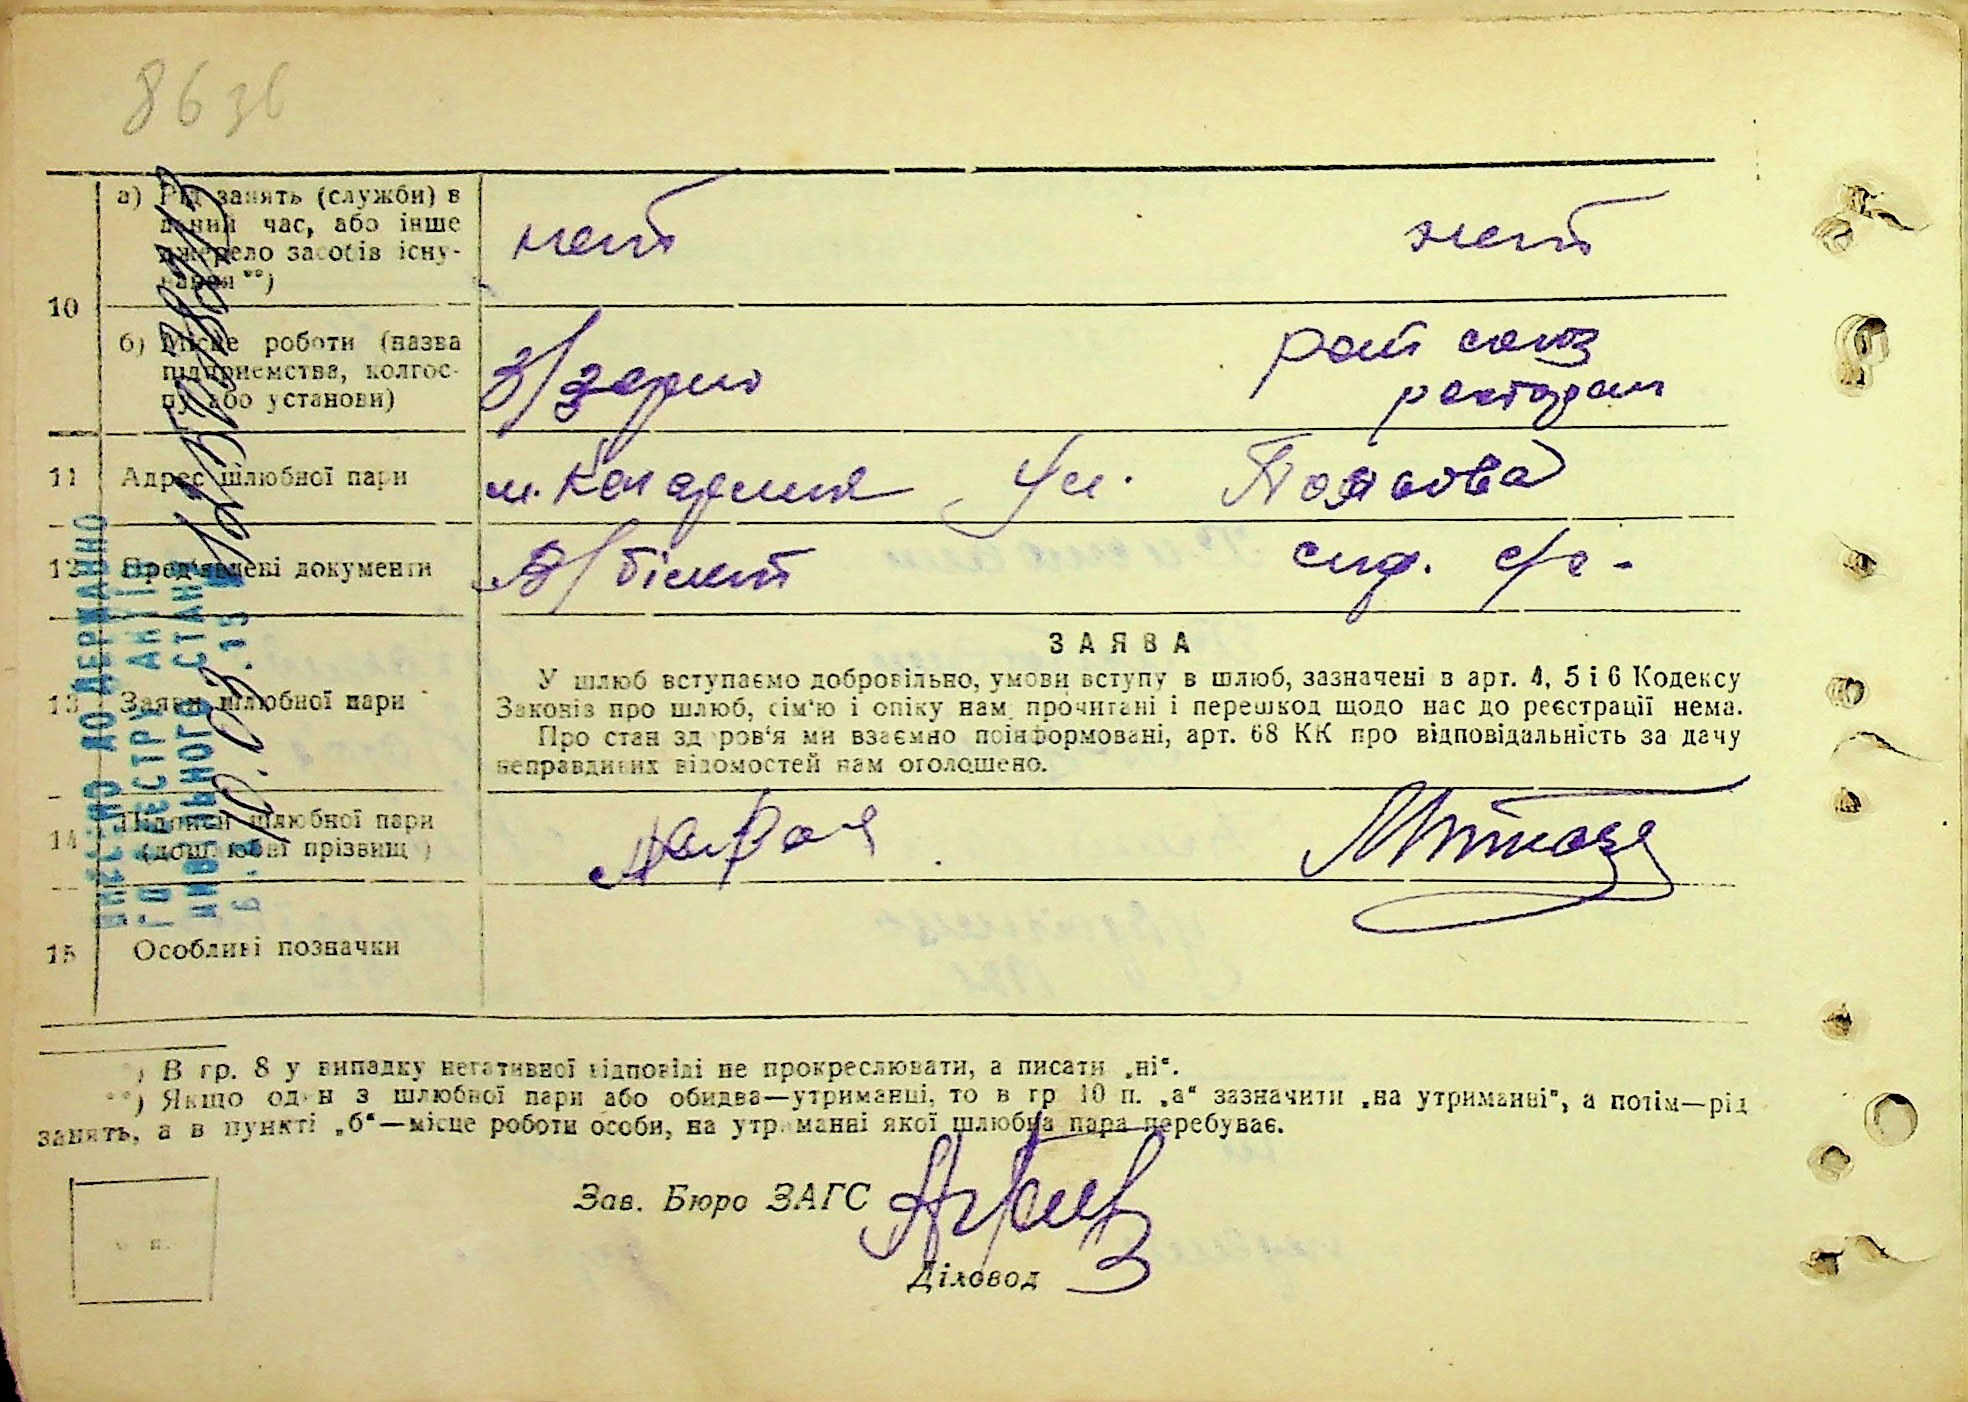 86 зв
10
а) Рід занять (служби) в
даний час, або інше
джерело засобів існу-
вання **)
нет нет
б) Місце роботи (назва
підприємства, колгос-
пу або установи)
З/зерно рай союз
11 Адрес шлюбної пари
м. Кагарлик Ул.
12 Пред'явлені документи
В/білет спр. с/с -
13 Заяви шлюбної пари
ЗАЯВА
У шлюб вступаємо добровільно, умови вступу в шлюб, зазначені в арт. 4, 5 і 6 Кодексу
Законів про шлюб, сім'ю і опіку нам прочитані і перешкод щодо нас до реєстрації нема.
Про стан здоров'я ми взаємно поінформовані, арт. 68 КК про відповідальність за дачу
неправдивих відомостей нам оголошено.
14 Підписи шлюбної пари
(дошлюбні прізвища)
15 Особливі позначки
ВНЕСЕНО ДО ДЕРЖАВНО
ГО РЕЄСТРУ АКТІВ
ЦИВІЛЬНОГО СТАНУ
*) В гр. 8 у випадку негативної відповіді не прокреслювати, а писати „ні“.
**) Якщо один з шлюбної пари або обидва—утриманці, то в гр 10 п. „а“ зазначити „на утриманні“, а потім—рід
занять, а в пункті „б“—місце роботи особи, на утриманні якої шлюбна пара перебуває.
Зав. Бюро ЗАГС
Діловод